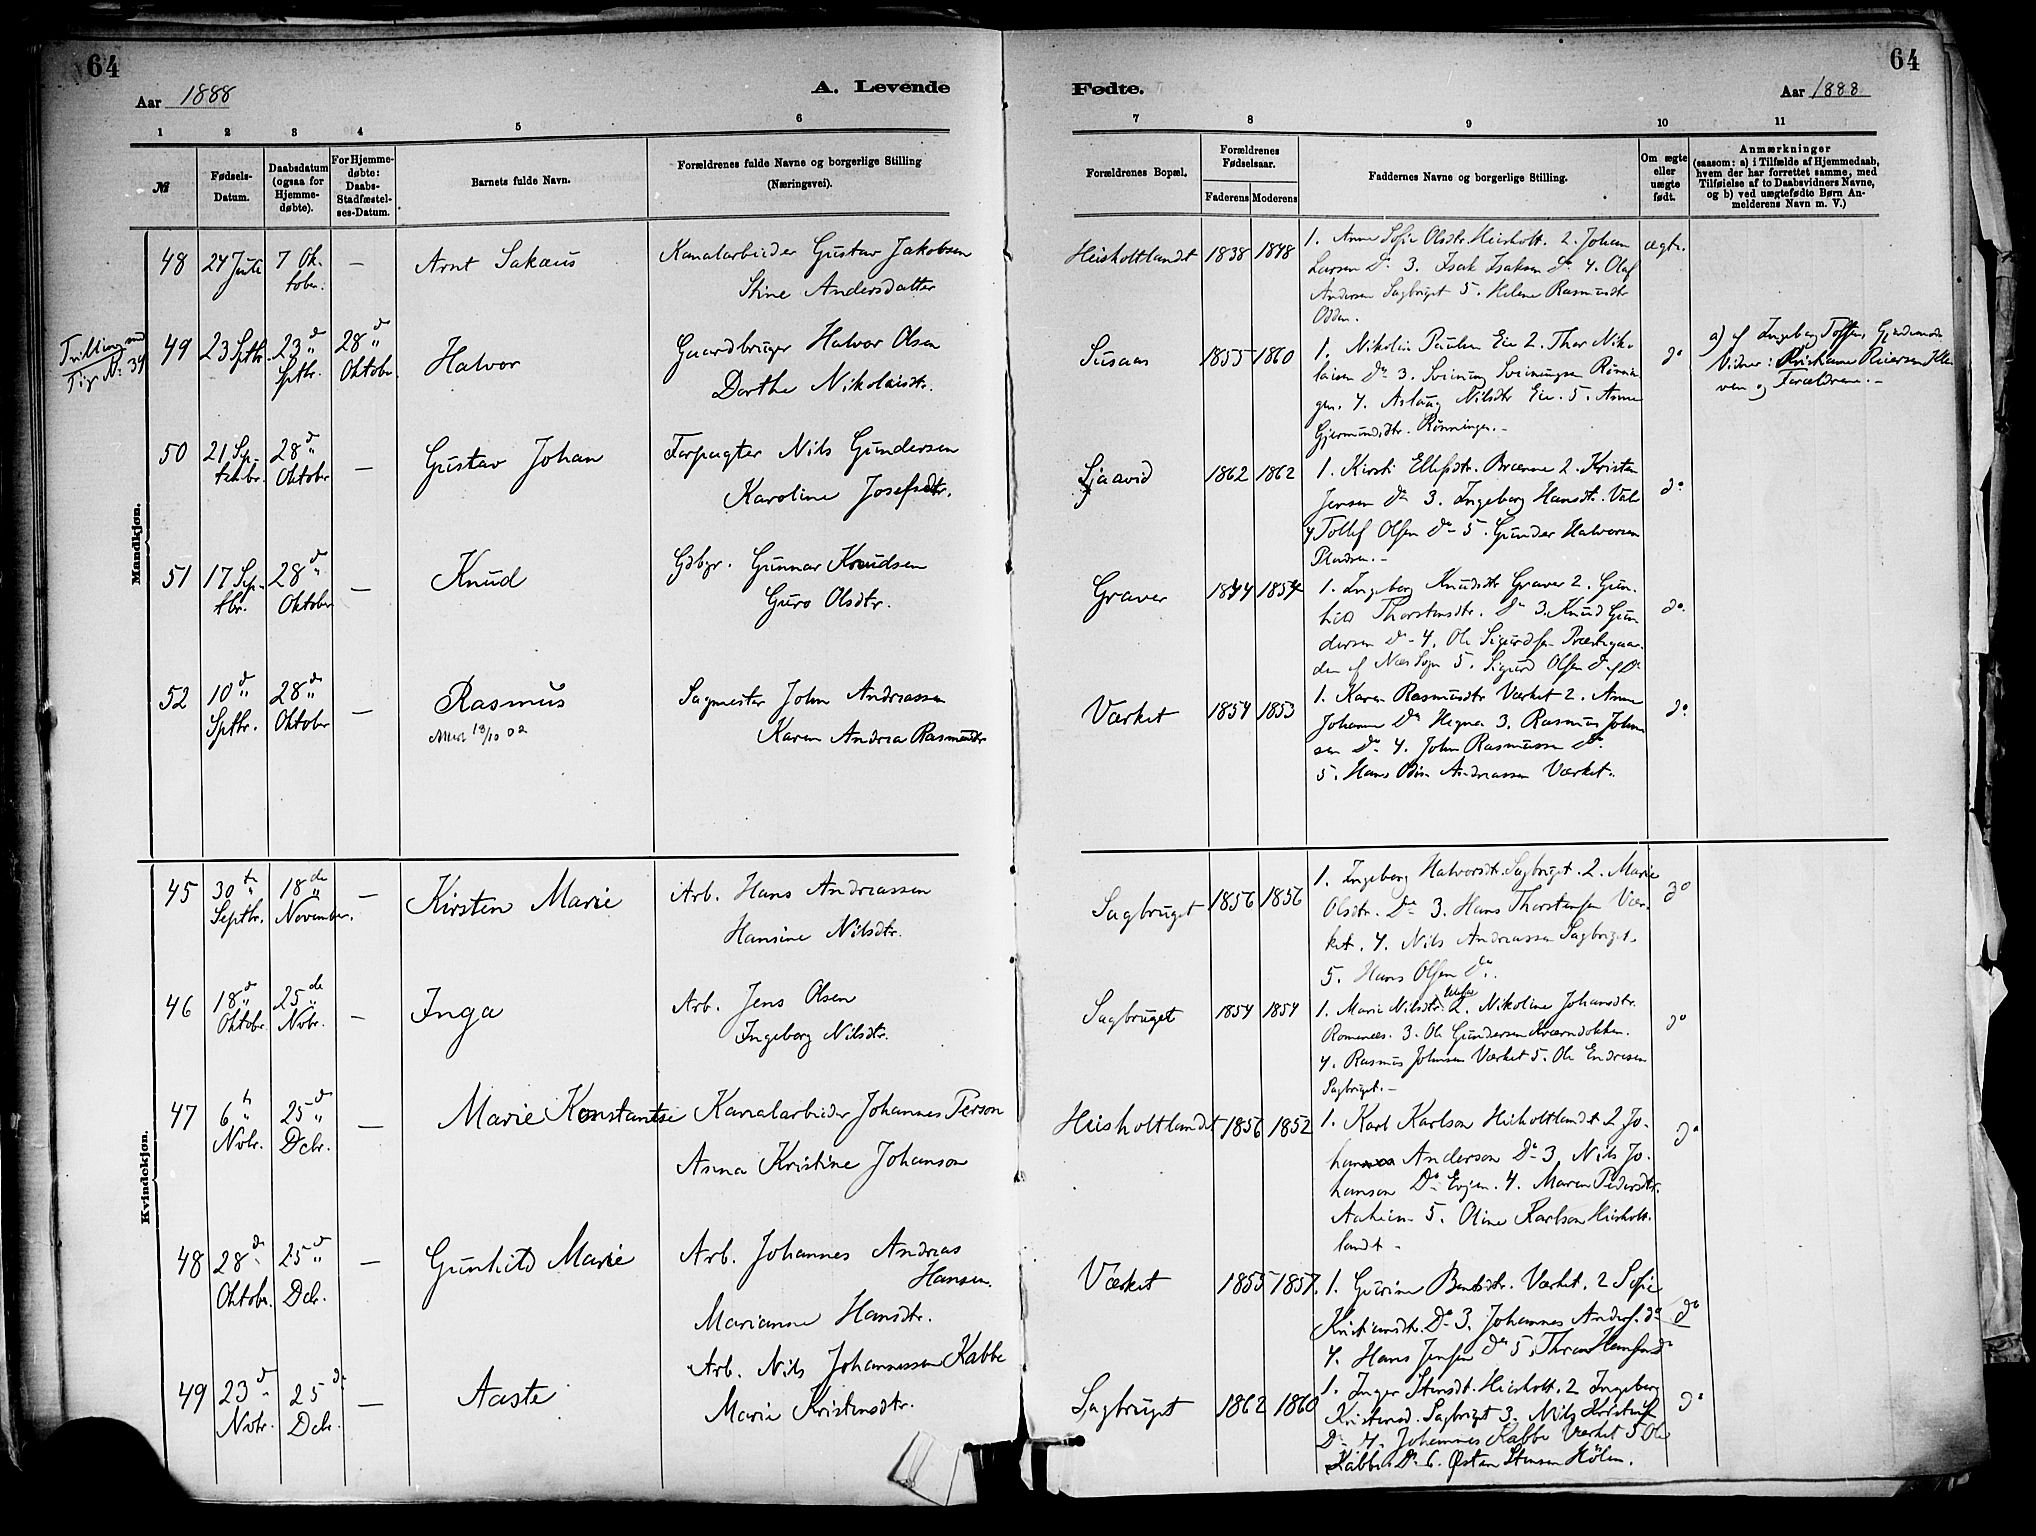 64
64
Aar 1888
A. Levende
Fødte.
Aar 1888
1 2 3 4 5 6
7 8 9 10 11
№
Fødsels-
Datum.
Daabsdatum
(ogsaa for
Hjemme-
døbte).
For Hjemme-
døbte:
Daabs-
Stadfæstel-
ses-Datum.
Barnets fulde Navn.
Forældrenes fulde Navne og borgerlige Stilling
(Næringsvei).
Forældrenes Bopæl.
Forældrenes
Fødselsaar.
Faderens Moderens
Faddernes Navne og borgerlige Stilling.
Om ægte
eller
uægte
født.
Anmærkninger
(saasom: a) i Tilfælde af Hjemmedaab,
hvem der har forrettet samme, med
Tilføielse af to Daabsvidners Navne,
og b) ved uægtefødte Børn An-
melderens Navn m. V.)
Mandkjøn.
48 24 Juli 7 Ok-
tober. —
Arnt Sakæus
Kanalarbeider Gustav Jakobsen
Stine Andersdatter
Heisholtlandt 1838 1848
1. Anne Sofie Olsdtr. Heisholt. 2. Johan
Larsen Do 3. Isak Isaksen Do 4. Olaf
Andersen Sagbruget 5. Helene Rasmusdtr
Odden.
ægte.
Tvilling med
Pige No 39
49 23 Sptbr. 23d Sptbr. 28d Oktober
Halvor
Gaardbruger Halvor Olsen
Dorthe Nikolaisdtr.
Susaas 1855 1860
1. Nikolai Paulsen Eie 2. Thor Niko
laisen Do 3. Sveinung Sveinungsen Rønnin
gen. 4. Aslaug Nilsdtr Eie. 5. Anne
Gjermundsdtr. Rønningen.
do
a) af Ingeborg
Vidner: Reiersen
ven og Forældrene.—
50 21 Sep-
tebr. 28d Oktober —
Gustav Johan
Forpagter Nils Gundersen
Karoline Josefsdtr.
Ljaavid 1862 1862
1. Kirsti Ellefsdtr. 2. Kristen
Jensen Do 3. Ingeborg Hansdtr.
4 Tollef Olsen Do 5. Gunder Halvorsen
Pladsen.—
do
51 17 Sep-
tbr. 28d Oktober —
Knud
Gdbgr. Gunnar Knudsen
Guro Olsdtr.
Graver 1844 1854
1. Ingeborg Knudsdtr Graver 2. Gun-
hild Thorstensdtr. Do 3. Knud Gun
dersen Do 4. Ole Sigurdsen Præstegaar
den af Næs Sogn 5. Sigurd Olsen do af Do
do
52 10d Sptbr. 28d Oktober —
Rasmus
Attest 13/10 02
Sagmester John Andreassen
Karen Andrea Rasmusdtr
Værket 1854 1853
1. Karen Rasmusdtr Værket 2. Anne
Johanne Do Hegna 3. Rasmus Johan
sen Do 4. John Rasmussen Do
5. Hans Odin Andreassen Værket.
do
Kvindekjøn.
45 30te Septbr. 18de November. —
Kirsten Marie
Arb. Hans Andreassen
Hansine Nilsdtr.
Sagbruget 1856 1856
1. Ingeborg Halvorsdtr. Sagbruget. 2. Marie
Olsdtr. Do 3. Hans Thorstensen Vær-
ket. 4. Nils Andreassen Sagbruget.
5. Hans Olsen Do.
do
46 18d Oktober. 25de Nobr. —
Inga
Arb. Jens Olsen
Ingeborg Nilsdtr.
Sagbruget 1854 1854
1. Marie Nilsdtr. 2. Nikoline Johansdtr.
Romenæs. 3. Ole Gundersen Kværndokken.
4. Rasmus Johnsen Værket 5. Ole Endresen
Sagbruget.—
do
47 6te Nobr. 25d Dcbr. —
Marie Konstantse
Kanalarbeider Johannes Person
Anna Kristine Johanson
Heisholtlandt 1856 1852
1. Karl Karlson Heisholtlandt 2 Jo-
han Anderson Do 3. Nils Jo-
hanson Do Evjen. 4. Maren Pedersdtr.
Aaheim 5. Oline Karlson Heisholt
landt —
do
48 28de Oktober. 25d Dcbr. —
Gunhild Marie
Arb. Johannes Andreas
Hansen.
Marianne Hansdtr.
Værket 1855 1857.
1. Gurine Bentsdtr. Værket. 2 Sofie
Kristiansdtr. Do 3. Johannes Do
4. Hans Jensen Do 5. Do
do
49 23d Nobr. 25de Dcbr. —
Aaste
Arb. Nils Johannessen Kabbe
Marie Kristensdtr.
Sagbruget 1862 1860
1. Inger Stensdtr. Heisholt. 2 Ingeborg
Kristensd. Sagbruget 3. Nils Kristensen
Do 4. Johannes Kabbe Værket 5 Ole
Kabbe Do 6. Østen Stensen Hölen.
do